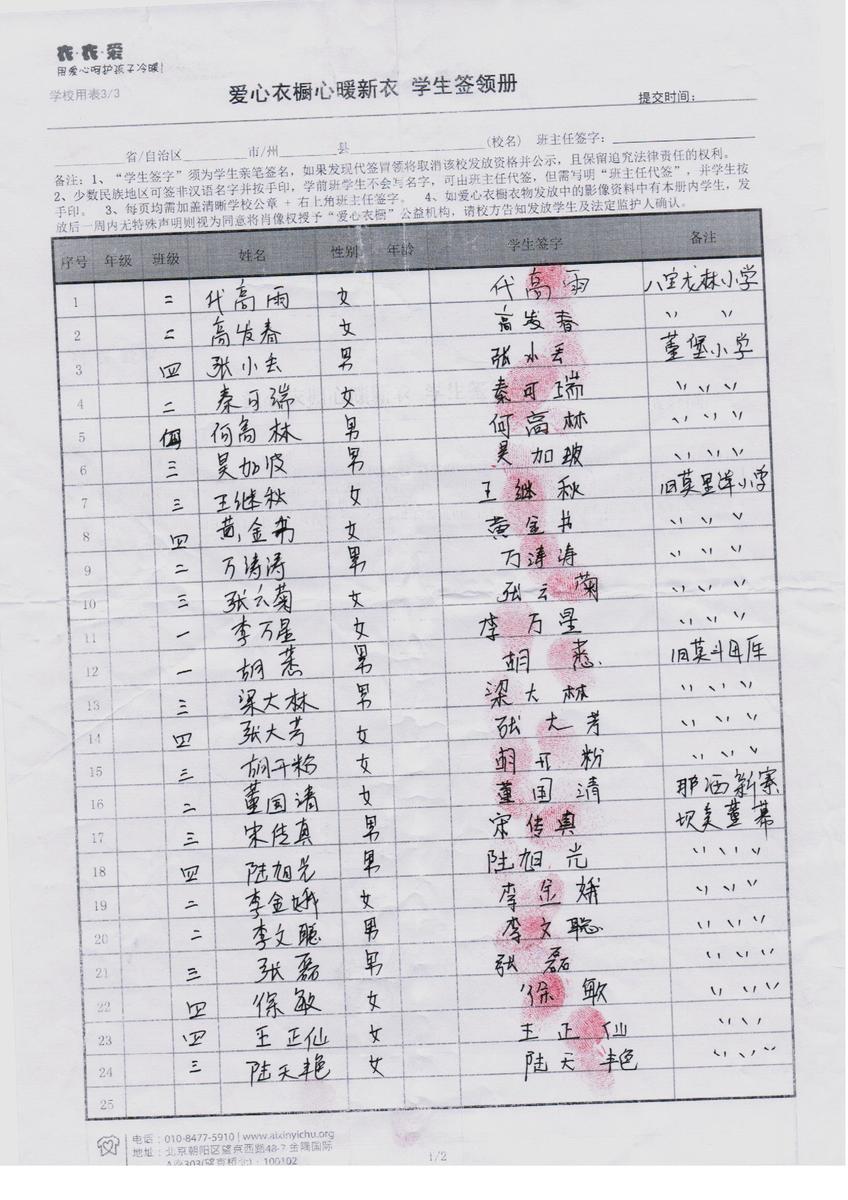 衣·衣·爱
用爱心呵护孩子冷暖!
学校用表3/3
爱心衣橱心暖新衣 学生签领册
提交时间:
省/自治区 市/州 县 (校名) 班主任签字:
备注:1、“学生签字”须为学生亲笔签名,如果发现代签冒领将取消该校发放资格并公示,且保留追究法律责任的权利。
2、少数民族地区可签非汉语名字并按手印,学前班学生不会写名字,可由班主任代签,但需写明“班主任代签”,并学生按
手印。 3、每页均需加盖清晰学校公章 + 右上角班主任签字。 4、如爱心衣橱衣物发放中的影像资料中有本册内学生,发
放后一周内无特殊声明则视为同意将肖像权授予“爱心衣橱”公益机构,请校方告知发放学生及法定监护人确认。
序号 年级 班级 姓名 性别 年龄 学生签字 备注
1 二 代高雨 女 代高雨 八宝龙林小学
2 二 高发春 女 高发春 〃 〃
3 四 张小去 男 张小丢 董堡小学
4 二 秦可瑞 女 秦可瑞 〃 〃 〃
5 四 何高林 男 何高林 〃 〃 〃
6 三 吴加波 男 吴加玻 〃 〃 〃
7 三 王继秋 女 王继秋 旧莫里洋小学
8 四 黄金书 女 黄金书 〃 〃 〃
9 二 万涛涛 男 万涛涛 〃 〃 〃
10 三 张云菊 女 张云菊 〃 〃 〃
11 一 李万星 女 李万星 〃 〃 〃
12 一 胡 男 胡 旧莫斗母库
13 三 梁大林 男 梁大林 〃 〃 〃
14 四 张大芳 女 张大芳 〃 〃 〃
15 三 胡开粉 女 胡开粉 〃 〃 〃
16 二 董国清 女 董国清 那洒新寨
17 三 宋传真 男 宋传真 坎美董幕
18 四 陆旭光 男 陆旭光 〃 〃 〃
19 二 李金娥 女 李金娥 〃 〃 〃
20 二 李文聪 男 李文聪 〃 〃 〃
21 三 张磊 男 张磊 〃 〃 〃
22 四 徐敏 女 徐敏 〃 〃 〃
23 四 王正仙 女 王正仙 〃 〃 〃
24 三 陆天艳 女 陆天艳 〃 〃 〃
25
电话:010-8477-5910 | www.aixinyichu.org
地址:北京朝阳区望京西路48-7 金隅国际
A座303(望京桥北):100102
1/2